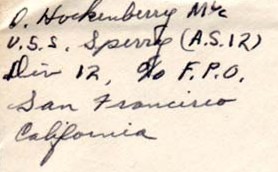 D. Hockenberry M1/c
U.S.S. Sperry (A.S.12)
Div 12, % F.P.O.
San Francisco
California